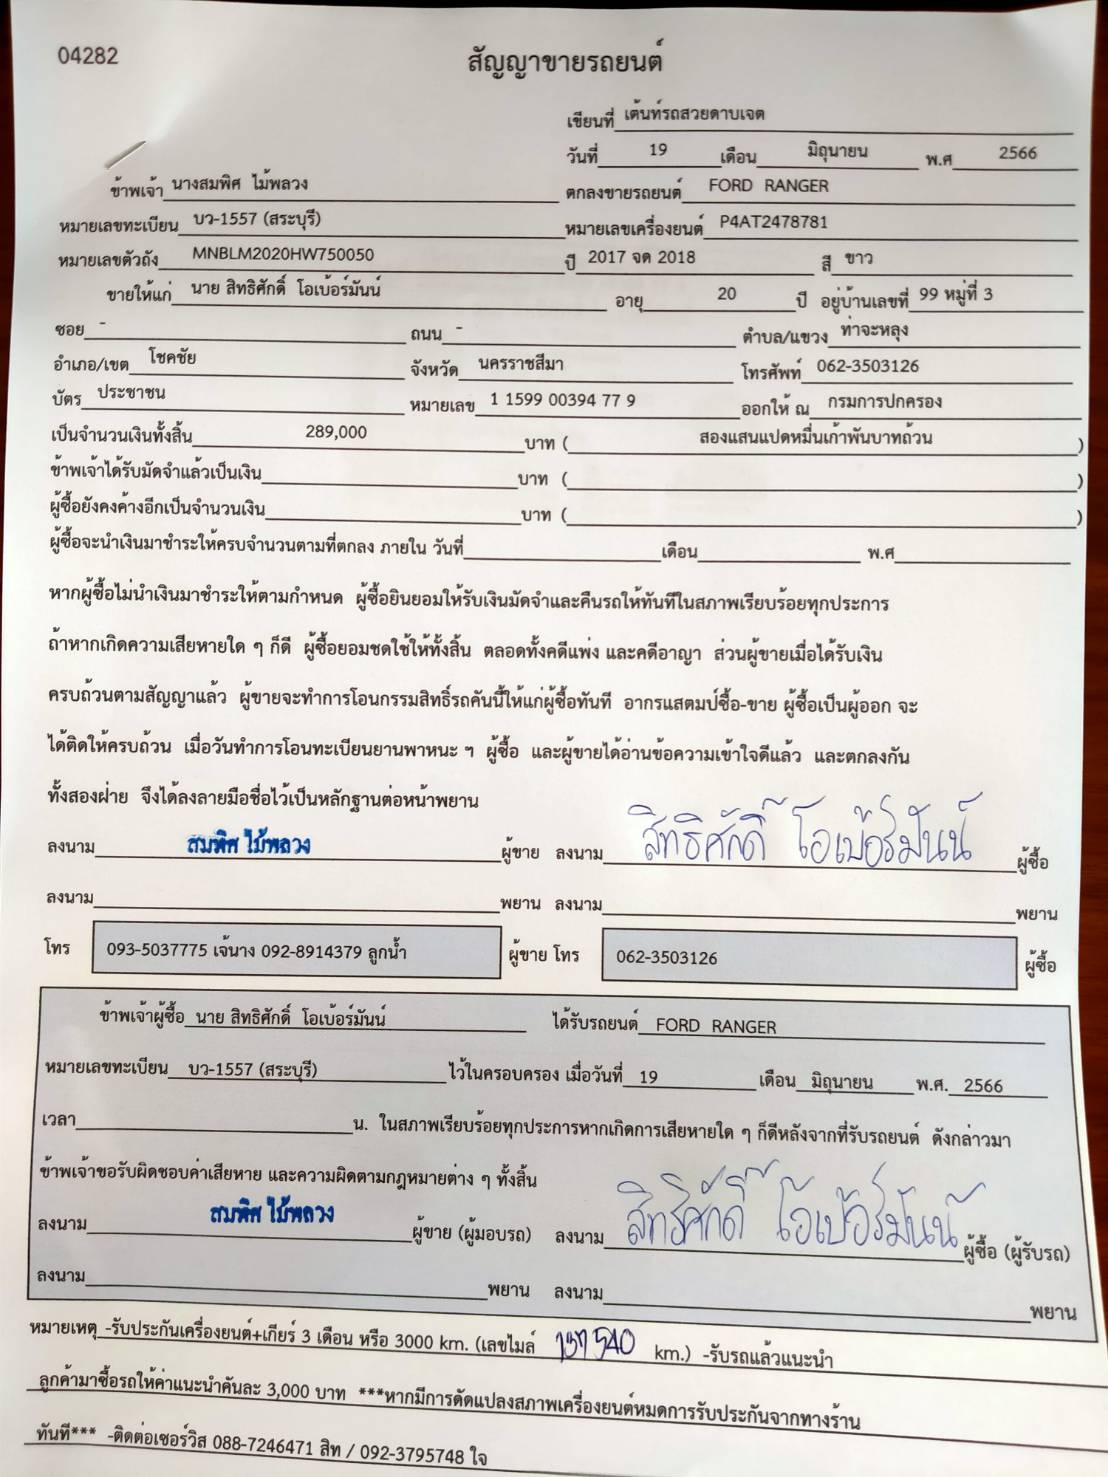 04282
สัญญาขายรถยนต์
เขียนที่ เต้นท์รถสวยดาบเจต
วันที่ 19 เดือน มิถุนายน พ.ศ 2566
ข้าพเจ้า นางสมพิศ ไม้พลวง ตกลงขายรถยนต์ FORD RANGER
หมายเลขทะเบียน บว-1557 (สระบุรี) หมายเลขเครื่องยนต์ P4AT2478781
หมายเลขตัวถัง MNBLM2020HW750050 ปี 2017 จด 2018 สี ขาว
ขายให้แก่ นาย สิทธิศักดิ์ โอเบ้อร์มันน์ อายุ 20 ปี อยู่บ้านเลขที่ 99 หมู่ที่ 3
ซอย - ถนน - ตำบล/แขวง ท่าจะหลุง
อำเภอ/เขต โชคชัย จังหวัด นครราชสีมา โทรศัพท์ 062-3503126
บัตร ประชาชน หมายเลข 1 1599 00394 77 9 ออกให้ ณ กรมการปกครอง
เป็นจำนวนเงินทั้งสิ้น 289,000 บาท ( สองแสนแปดหมื่นเก้าพันบาทถ้วน )
ข้าพเจ้าได้รับมัดจำแล้วเป็นเงิน บาท ( )
ผู้ซื้อยังคงค้างอีกเป็นจำนวนเงิน บาท ( )
ผู้ซื้อจะนำเงินมาชำระให้ครบจำนวนตามที่ตกลง ภายใน วันที่ เดือน พ.ศ
หากผู้ซื้อไม่นำเงินมาชำระให้ตามกำหนด ผู้ซื้อยินยอมให้รับเงินมัดจำและคืนรถให้ทันทีในสภาพเรียบร้อยทุกประการ
ถ้าหากเกิดความเสียหายใด ๆ ก็ดี ผู้ซื้อยอมชดใช้ให้ทั้งสิ้น ตลอดทั้งคดีแพ่ง และคดีอาญา ส่วนผู้ขายเมื่อได้รับเงิน
ครบถ้วนตามสัญญาแล้ว ผู้ขายจะทำการโอนกรรมสิทธิ์รถคันนี้ให้แก่ผู้ซื้อทันที อากรแสตมป์ซื้อ-ขาย ผู้ซื้อเป็นผู้ออก จะ
ได้ติดให้ครบถ้วน เมื่อวันทำการโอนทะเบียนยานพาหนะ ฯ ผู้ซื้อ และผู้ขายได้อ่านข้อความเข้าใจดีแล้ว และตกลงกัน
ทั้งสองฝ่าย จึงได้ลงลายมือชื่อไว้เป็นหลักฐานต่อหน้าพยาน
ลงนาม สมพิศ ไม้พลวง ผู้ขาย ลงนาม สิทธิศักดิ์ โอเบ้อร์มันน์ ผู้ซื้อ
ลงนาม พยาน ลงนาม พยาน
โทร 093-5037775 เจ้นาง 092-8914379 ลูกน้ำ ผู้ขาย โทร 062-3503126 ผู้ซื้อ
ข้าพเจ้าผู้ซื้อ นาย สิทธิศักดิ์ โอเบ้อร์มันน์ ได้รับรถยนต์ FORD RANGER
หมายเลขทะเบียน บว-1557 (สระบุรี) ไว้ในครอบครอง เมื่อวันที่ 19 เดือน มิถุนายน พ.ศ. 2566
เวลา น. ในสภาพเรียบร้อยทุกประการหากเกิดการเสียหายใด ๆ ก็ดีหลังจากที่รับรถยนต์ ดังกล่าวมา
ข้าพเจ้าขอรับผิดชอบค่าเสียหาย และความผิดตามกฎหมายต่าง ๆ ทั้งสิ้น
ลงนาม สมพิศ ไม้พลวง ผู้ขาย (ผู้มอบรถ) ลงนาม สิทธิศักดิ์ โอเบ้อร์มันน์ ผู้ซื้อ (ผู้รับรถ)
ลงนาม พยาน ลงนาม พยาน
หมายเหตุ -รับประกันเครื่องยนต์+เกียร์ 3 เดือน หรือ 3000 km. (เลขไมล์ 137540 km.) -รับรถแล้วแนะนำ
ลูกค้ามาซื้อรถให้ค่าแนะนำคันละ 3,000 บาท ***หากมีการดัดแปลงสภาพเครื่องยนต์หมดการรับประกันจากทางร้าน
ทันที*** -ติดต่อเซอร์วิส 088-7246471 สิท / 092-3795748 ใจ